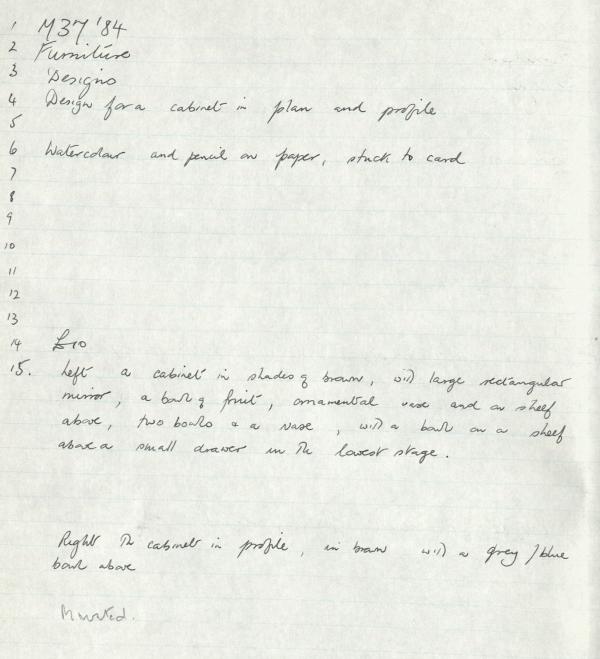 1 M37 '84
2 Furniture
3 Designs
4 Design for a cabinet in plan and profile
5
6 Watercolour and pencil on paper, stuck to card
7
8
9
10
11
12
13
14 £10
15. Left a cabinet in shades of brown, with large rectangular
mirror, a bowl of fruit, ornamental vase and on shelf
above, two bowls & a vase, with a bowl on a shelf
above a small drawer in the lowest stage.
Right The cabinet in profile, in brown with a grey/blue
bowl above
Mounted.